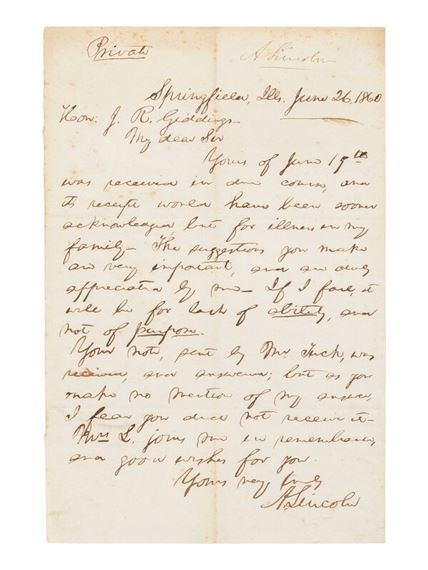 Private
A. Lincoln
Springfield, Ills. June 26. 1860
Hon: J. R. Giddings
My dear Sir
Yours of June 19th
was received in due course, and
its receipt would have been sooner
acknowledged, but for illness in my
family— The suggestions you make
are very important, and are duly
appreciated by me— If I fail, it
will be for lack of ability, and
not of purpose.
Your note, sent by Mr. Tuck, was
received, and answered; but as you
make no mention of my answer,
I fear you did not receive it—
Mrs L. joins me in remembrances
and good wishes for you.
Yours very truly
A. Lincoln